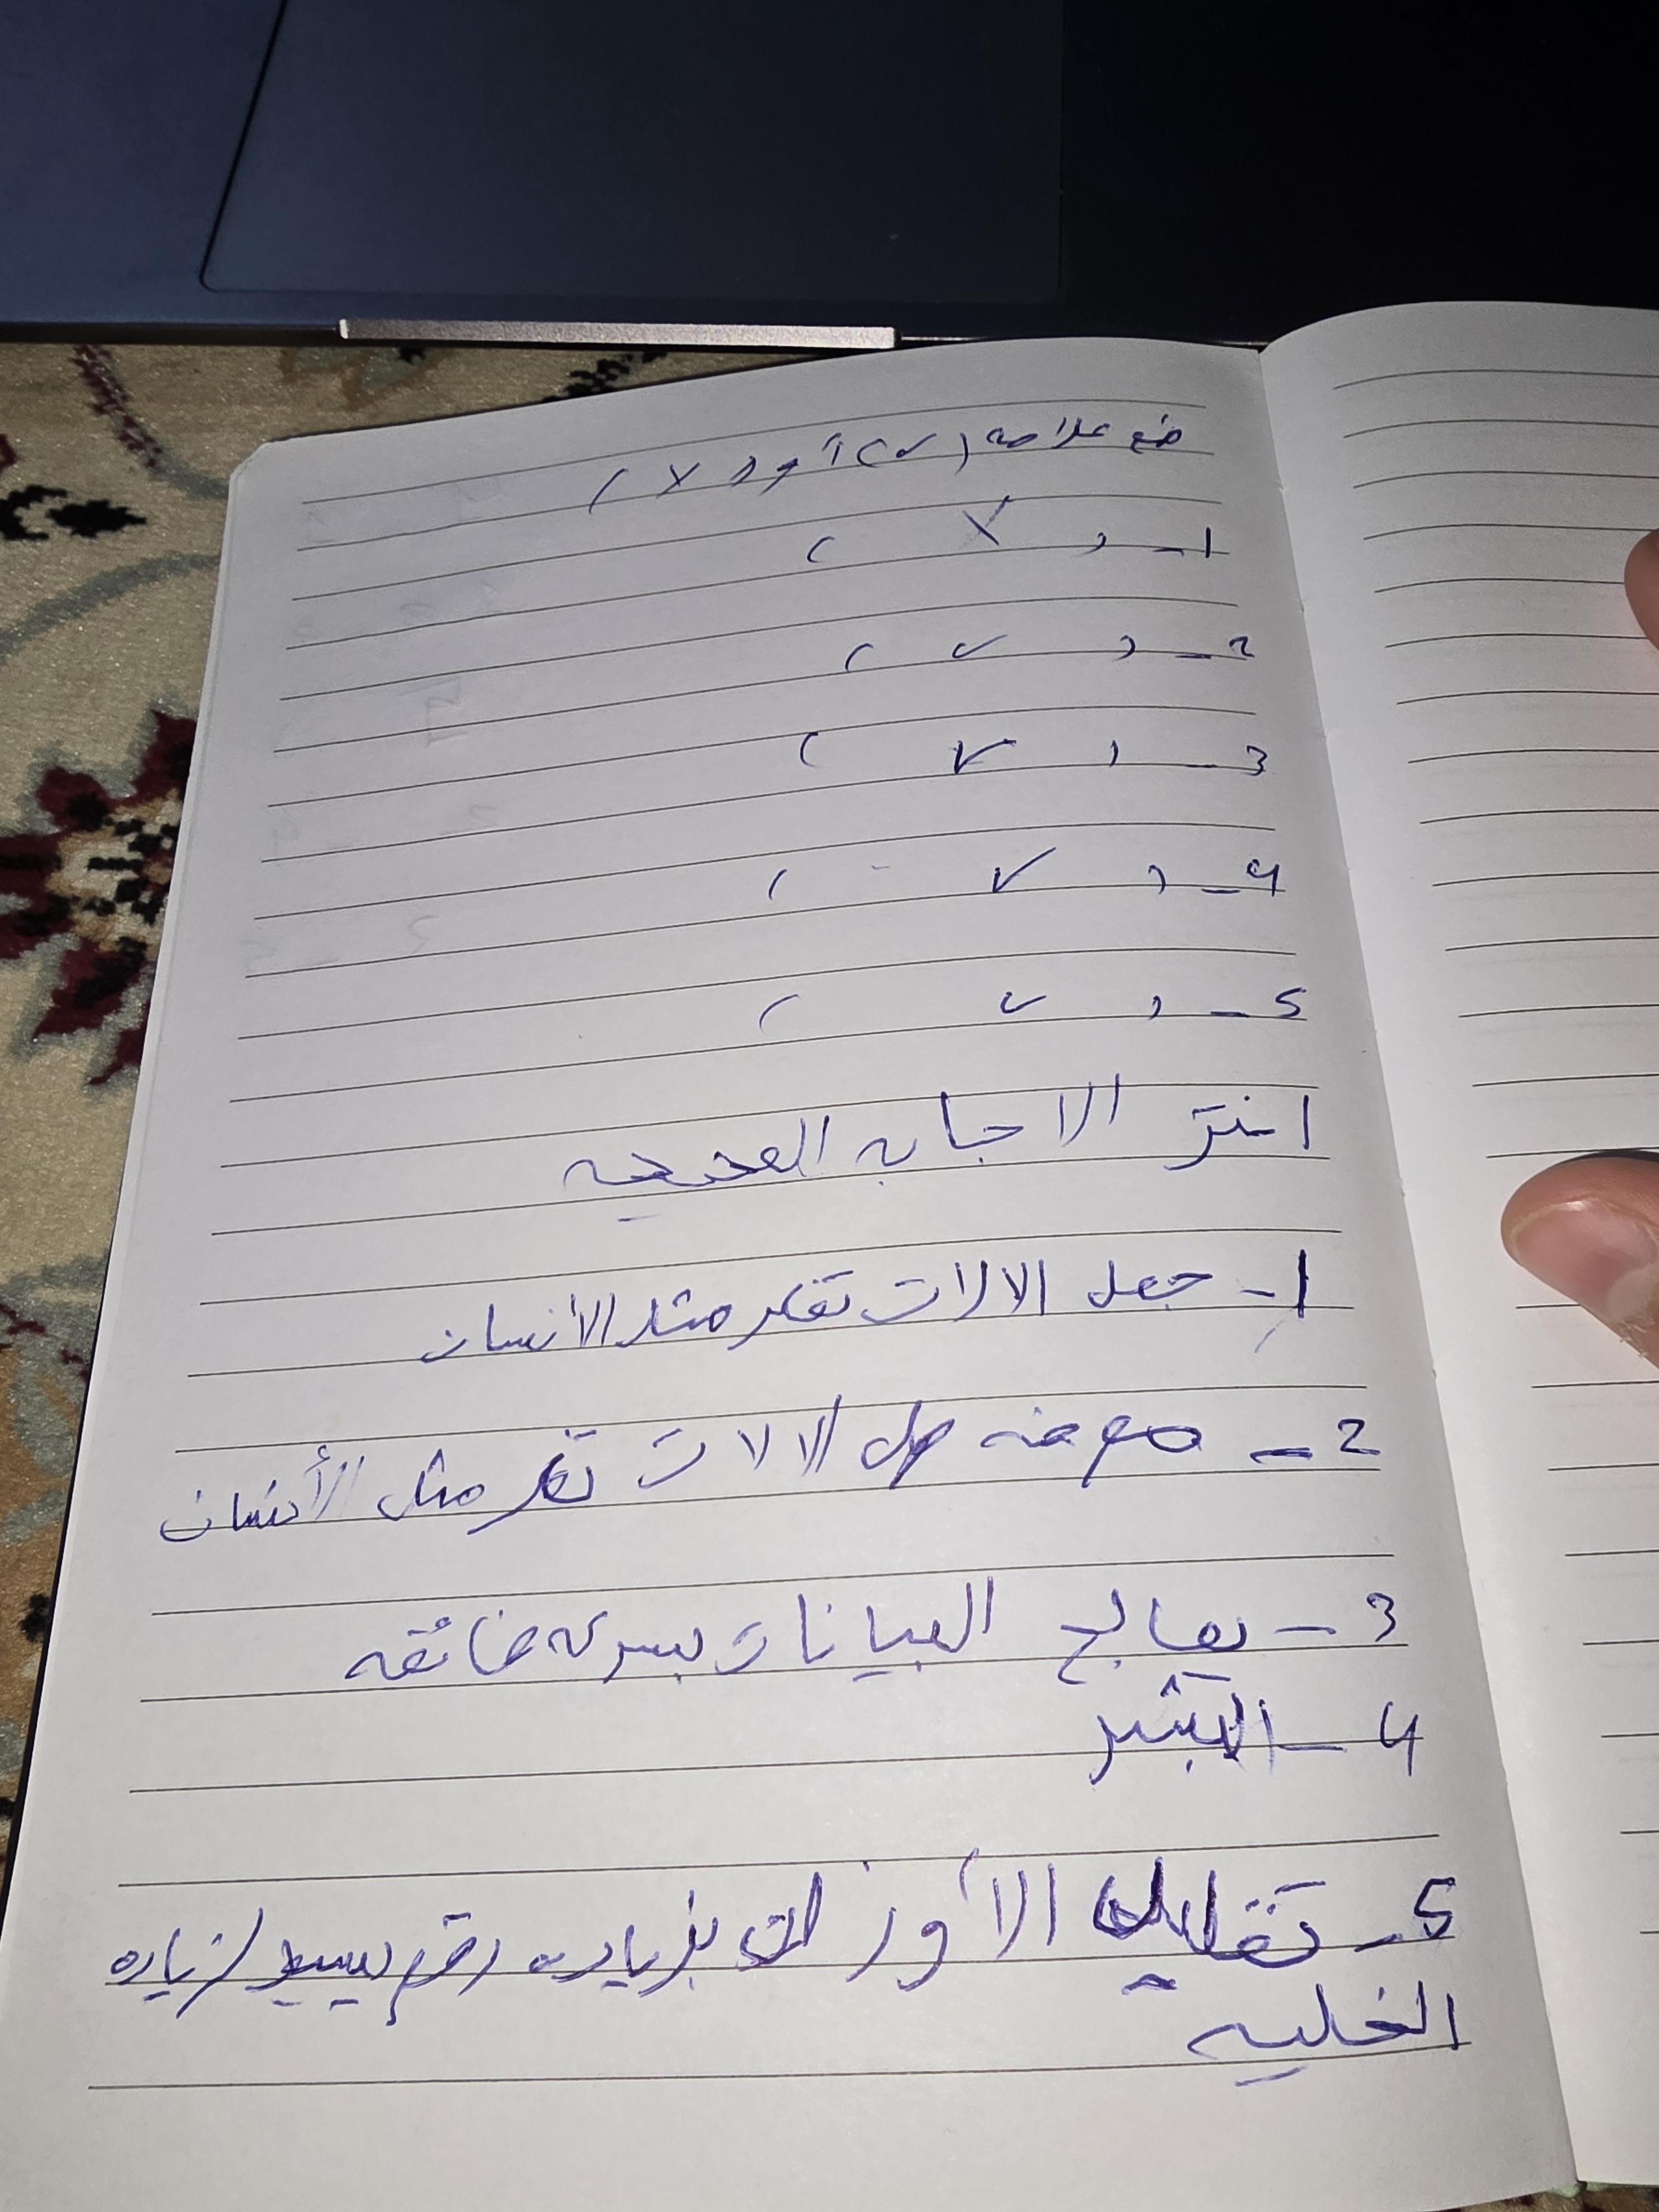 ضع علامه (✓) أو (X)
1- ( X )
2- ( ✓ )
3- ( ✓ )
4- ( ✓ )
5- ( ✓ )
اختر الاجابه الصحيحه
1- جعل الالات تفكر مثل الأنسان
2- معرفه هل الالات تفكر مثل الأنسان
3- يعالج البيانات بسرعه فائقه
4- البشر
5- تقليل الأوزان بزياده رقم بسيط لزياده
الخليه